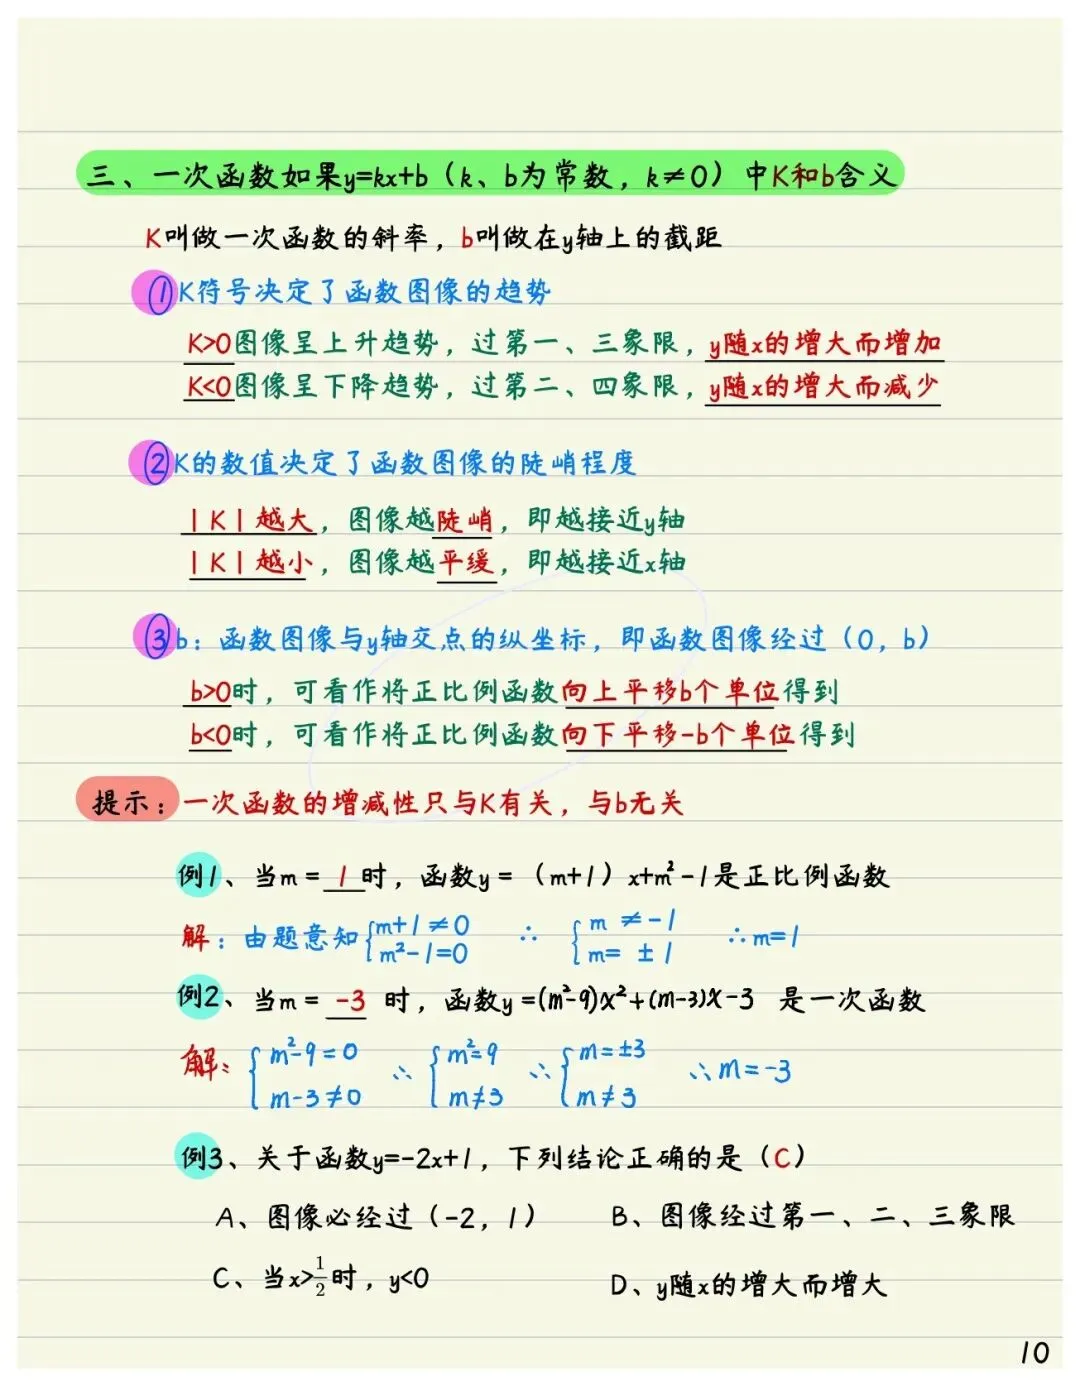 三、一次函数如果y=kx+b（k、b为常数，k≠0）中K和b含义
K叫做一次函数的斜率，b叫做在y轴上的截距
①K符号决定了函数图像的趋势
K>0图像呈上升趋势，过第一、三象限，y随x的增大而增加
K<0图像呈下降趋势，过第二、四象限，y随x的增大而减少
②K的数值决定了函数图像的陡峭程度
|K|越大，图像越陡峭，即越接近y轴
|K|越小，图像越平缓，即越接近x轴
③b：函数图像与y轴交点的纵坐标，即函数图像经过（0，b）
b>0时，可看作将正比例函数向上平移b个单位得到
b<0时，可看作将正比例函数向下平移-b个单位得到
提示：一次函数的增减性只与K有关，与b无关
例1、当m=1时，函数y=（m+1）x+m²-1是正比例函数
解：由题意知{m+1≠0 m²-1=0 ∴{m≠-1 m=±1 ∴m=1
例2、当m=-3时，函数y=(m²-9)x²+(m-3)x-3 是一次函数
解：{m²-9=0 m-3≠0 ∴{m²=9 m≠3 ∴{m=±3 m≠3 ∴m=-3
例3、关于函数y=-2x+1，下列结论正确的是（C）
A、图像必经过（-2，1） B、图像经过第一、二、三象限
C、当x>1/2时，y<0 D、y随x的增大而增大
10